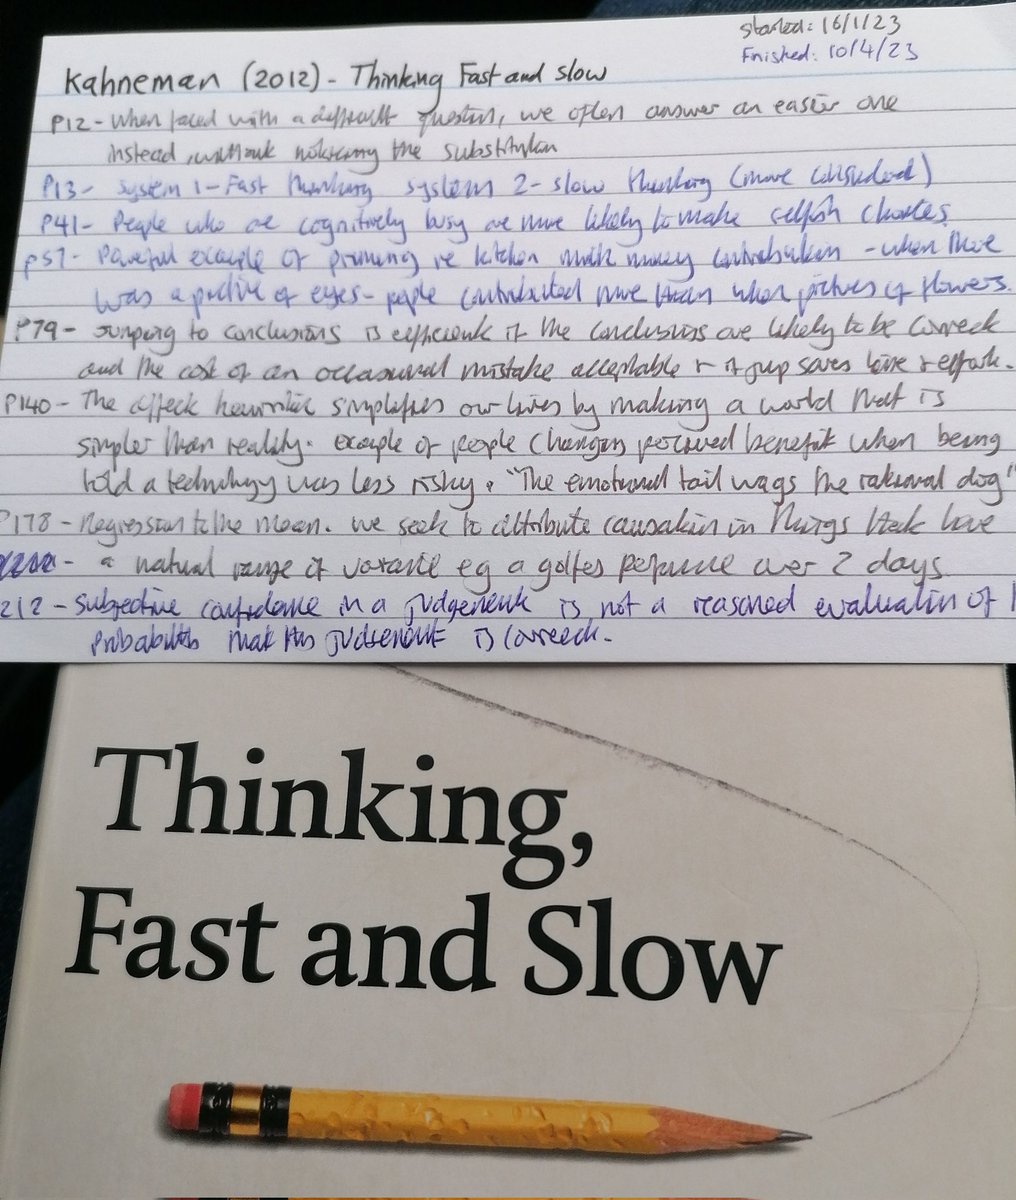 Started: 16/1/23
Finished: 10/4/23
Kahneman (2012) - Thinking Fast and Slow
P12 - When faced with a difficult question, we often answer an easier one
instead, without noticing the substitution
P13 - System 1 - Fast thinking system 2 - slow thinking (more considered)
P41 - People who are cognitively busy are more likely to make selfish choices
P57 - Powerful example of priming re kitchen milk money contribution - when there
was a picture of eyes - people contributed more than when pictures of flowers.
P79 - Jumping to conclusions is efficient if the conclusions are likely to be correct
and the cost of an occasional mistake acceptable + if jump saves time + effort.
P140 - The affect heuristic simplifies our lives by making a world that is
simpler than reality. example of people changing perceived benefit when being
told a technology was less risky. "The emotional tail wags the rational dog"
P178 - Regression to the mean. we seek to attribute causation in things that have
- a natural range of eg a golfers over 2 days
212 - Subjective confidence in a judgement is not a reasoned evaluation of
that this judgement is correct.
Thinking,
Fast and Slow